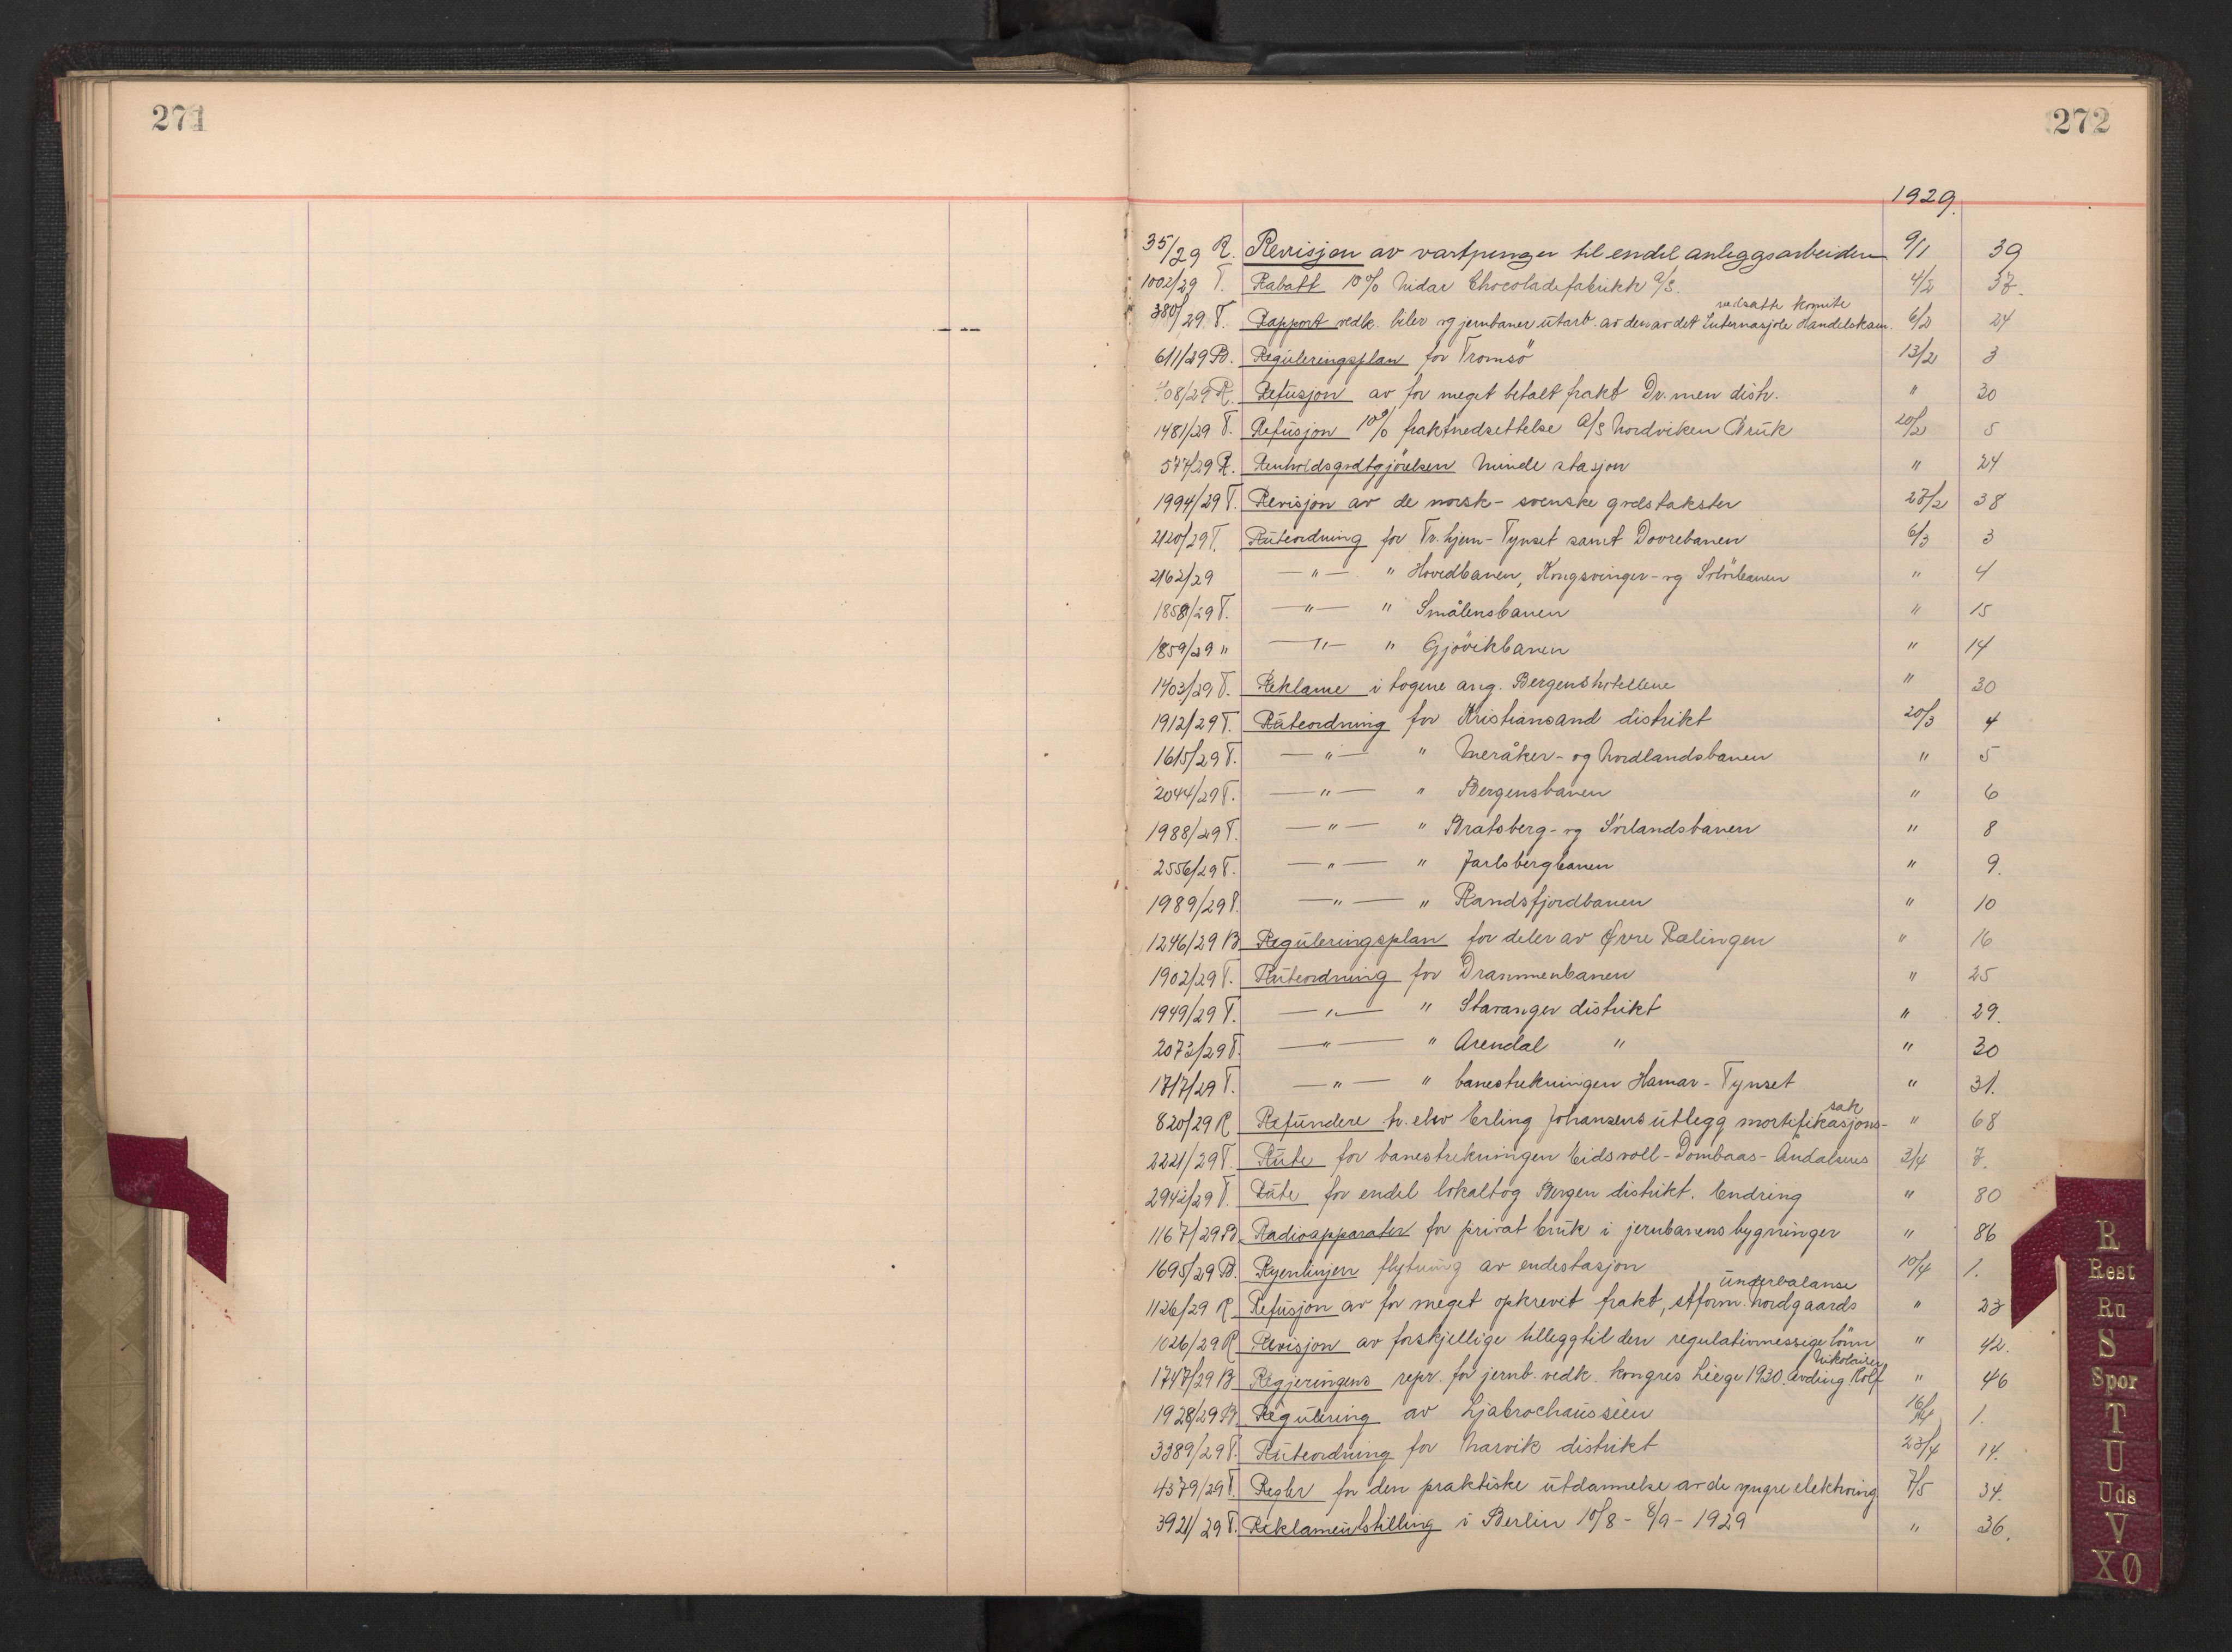 271
272
1929.
35/29 R. Revisjon av vartpenger til endel anleggsarbeidere 9/1 39
1002/29 T. Rabatt 10% Nidar Chocoladefabrikk A/S. 4/2 37.
nedsatte komite
380/29 T. Rapport vedk. biler og jernbaner utarb. av den av det Internasjole Handelskam. 6/2 24
611/29 B. Reguleringsplan for Tromsö 13/2 3
708/29 R. Refusjon av for meget betalt frakt Dr.men distr. " 30
1481/29 T. Refusjon 10% fraktnedsettelse A/S Nordviken Bruk 20/2 5
577/29 R. Renholdsgodtgjörelsen Minde stasjon " 24
1994/29 T. Revisjon av de norsk-svenske godstakster 27/2 38
2120/29 T. Ruteordning for Tr.hjem-Tynset samt Dovrebanen 6/3 3
2162/29 —"— " Hovedbanen, Kongsvinger- og Solörbanen " 4
1858/29 T. —"— " Smålensbanen " 15
1859/29 " —"— " Gjövikbanen " 14
1403/29 T. Reklame i togene ang. Bergenshotellene " 30
1912/29 T. Ruteordning for Kristiansand distrikt 20/3 4
1615/29 T. —"— " Meråker- og Nordlandsbanen " 5
2044/29 T. —"— " Bergensbanen " 6
1988/29 T. —"— " Bratsberg- og Sörlandsbanen " 8
2556/29 T. —"— " Jarlsbergbanen " 9.
1989/29 T. —"— " Randsfjordbanen " 10
1246/29 B Reguleringsplan for deler av Øvre Rælingen " 16
1902/29 T. Ruteordning for Drammenbanen " 25
1949/29 T. —"— " Stavanger distrikt " 29.
2073/29 T. —"— " Arendal " " 30
1717/29 T. —"— " banestrekningen Hamar-Tynset " 31.
sak
820/29 R Refundere tr. elev Erling Johansens utlegg mortifikasjons- " 68
2221/29 T. Rute for banestrekningen Eidsvoll-Dombaas-Åndalsnes 3/4 7.
2942/29 T. Rute for endel lokaltog Bergen distrikt. Endring " 80
1167/29 B. Radioapparater for privat bruk i jernbanens bygninger " 86
1695/29 B. Ryenlinjen flytning av endestasjon 10/4 1.
underbalanse
1126/29 R Refusjon av for meget opkrevet frakt, stform. Nordgaards " 23
1026/29 R Revisjon av forskjellige tillegg til den regulativmessige lönn " 42.
Nikolaisen
1747/29 B Regjeringens repr. for jernb. vedk. kongres Liège 1930. Avding. Rolf " 46
1928/29 B Regulering av Ljabrochausséen 16/4 1.
3389/29 T. Ruteordning for Narvik distrikt 23/4 14.
4379/29 T. Regler for den praktiske utdannelse av de yngre elektroing. 7/5 34.
3921/29 T. Reklameutstilling i Berlin 10/8 - 8/9 - 1929 " 36.
R
Rest
Ru
S
Spor
T
U
Uds
V
XØ